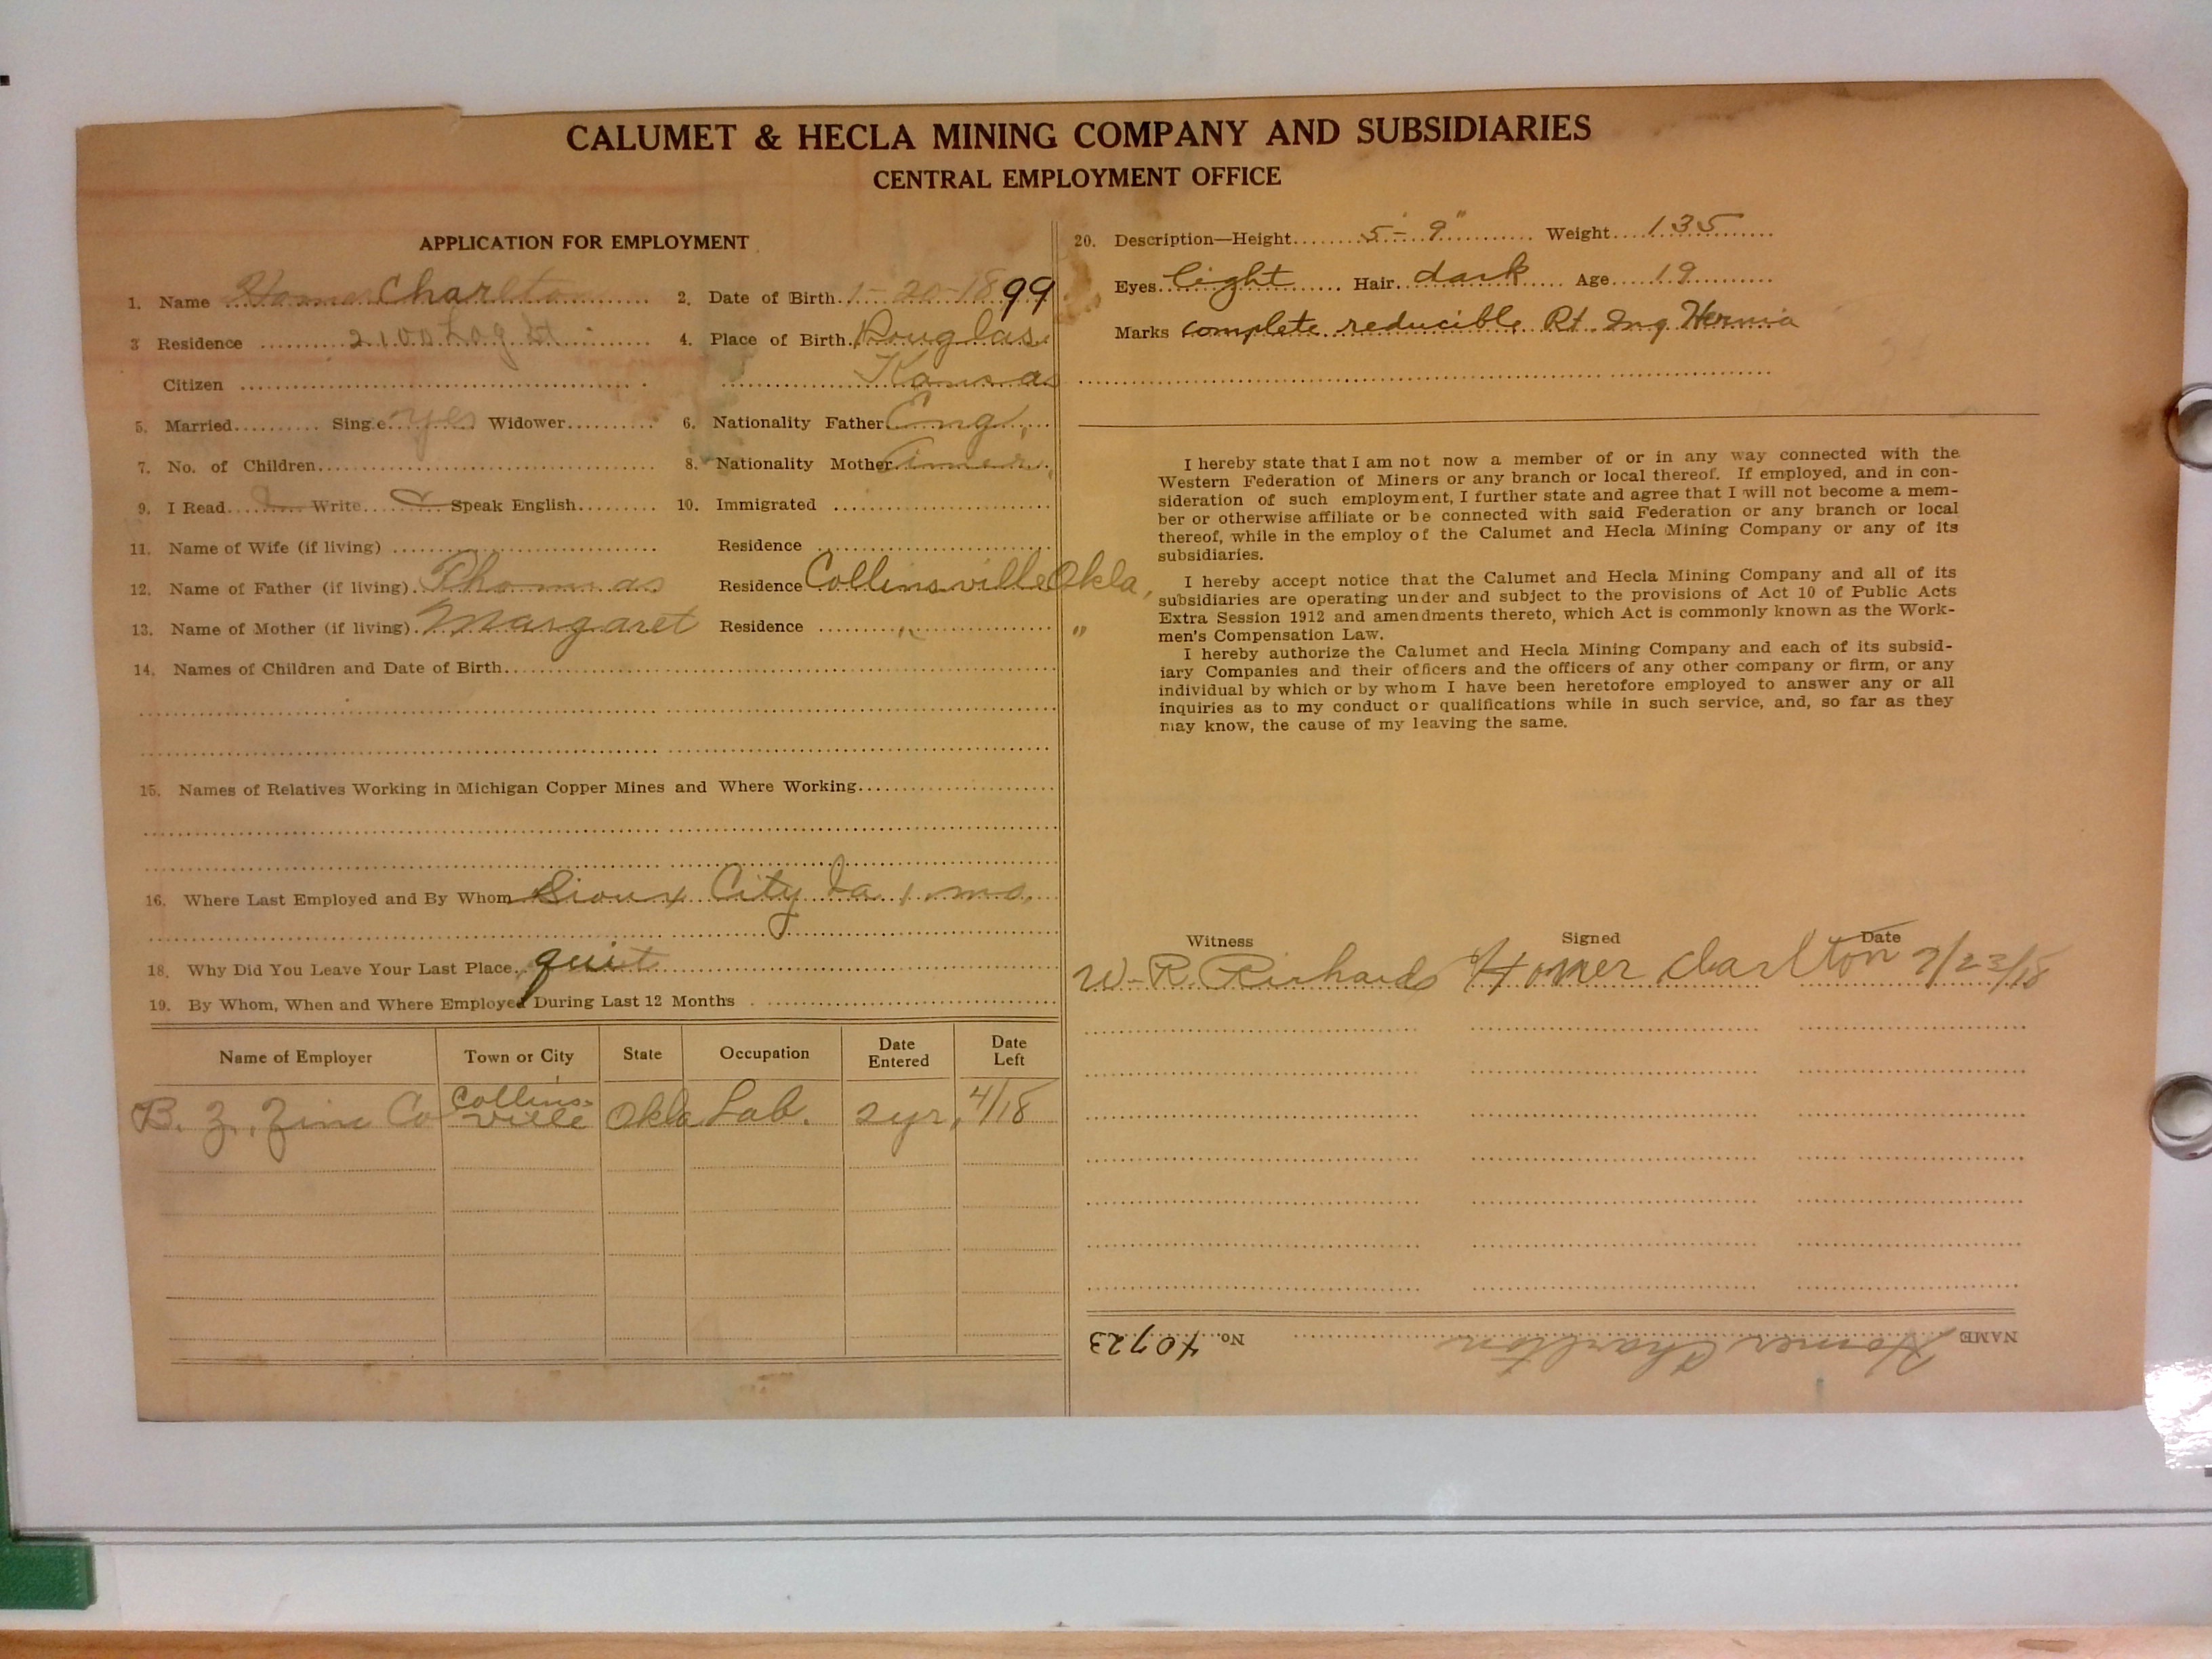 CALUMET & HECLA MINING COMPANY AND SUBSIDIARIES
CENTRAL EMPLOYMENT OFFICE
APPLICATION FOR EMPLOYMENT
1. Name Homer Charlton
2. Date of Birth 1-20-1899
3 Residence 2100 Log St
4. Place of Birth Douglas
Citizen
Kansas
5. Married Single yes Widower
6. Nationality Father Eng.
7. No. of Children
8. Nationality Mother Amer.
9. I Read Write Speak English
10. Immigrated
11. Name of Wife (if living)
Residence
12. Name of Father (if living) Thomas
Residence Collinsville Okla,
13. Name of Mother (if living) Margaret
Residence " "
14. Names of Children and Date of Birth
15. Names of Relatives Working in Michigan Copper Mines and Where Working
16. Where Last Employed and By Whom Sioux City Ia 1 mo.
18. Why Did You Leave Your Last Place quit
19. By Whom, When and Where Employed During Last 12 Months
Name of Employer Town or City State Occupation Date Entered Date Left
B. Z. Zinc Co Collins-ville Okla Lab. 2yr, 4/18
20. Description—Height 5-9" Weight 135
Eyes light Hair dark Age 19
Marks complete reducible Rt. Ing Hernia
I hereby state that I am not now a member of or in any way connected with the
Western Federation of Miners or any branch or local thereof. If employed, and in con-
sideration of such employment, I further state and agree that I will not become a mem-
ber or otherwise affiliate or be connected with said Federation or any branch or local
thereof, while in the employ of the Calumet and Hecla Mining Company or any of its
subsidiaries.
I hereby accept notice that the Calumet and Hecla Mining Company and all of its
subsidiaries are operating under and subject to the provisions of Act 10 of Public Acts
Extra Session 1912 and amendments thereto, which Act is commonly known as the Work-
men's Compensation Law.
I hereby authorize the Calumet and Hecla Mining Company and each of its subsid-
iary Companies and their officers and the officers of any other company or firm, or any
individual by which or by whom I have been heretofore employed to answer any or all
inquiries as to my conduct or qualifications while in such service, and, so far as they
may know, the cause of my leaving the same.
Witness Signed Date
W. R. Richards Homer Charlton 7/23/18
NAME Homer Charlton No. 40723